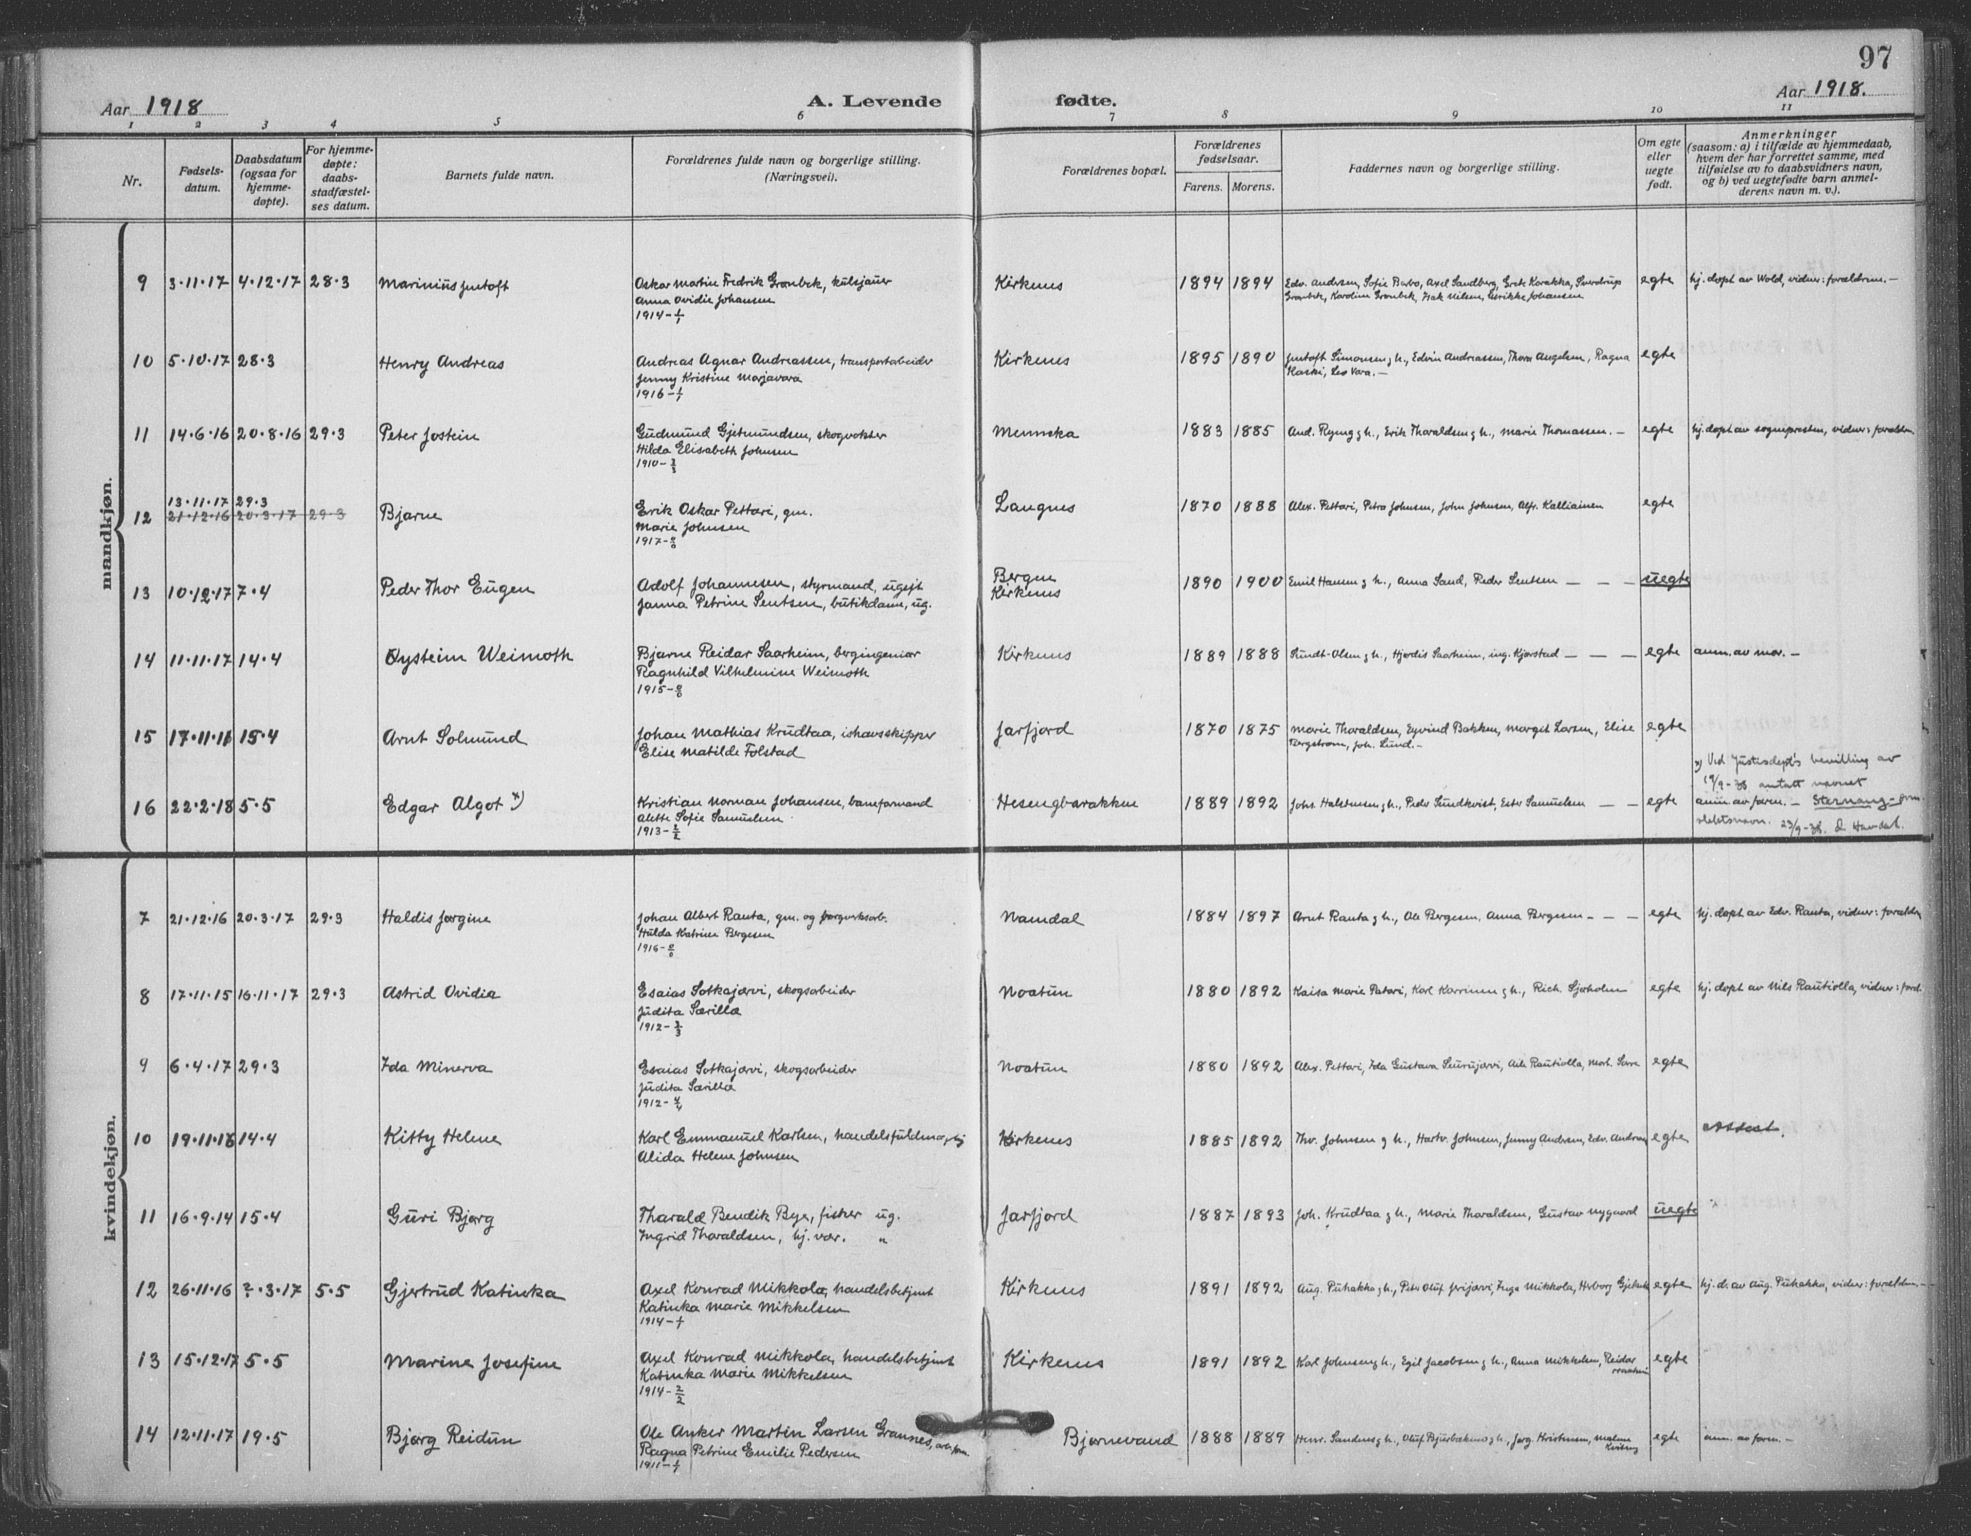 97
Aar 1918
A. Levende fødte.
Aar 1918.
1 2 3 4 5 6 7 8 9 10 11
Nr.
Fødsels-
datum.
Daabsdatum
(ogsaa for
hjemme-
døpte).
For hjemme-
døpte:
daabs-
stadfæstel-
ses datum.
Barnets fulde navn.
Forældrenes fulde navn og borgerlige stilling.
(Næringsvei).
Forældrenes bopæl.
Forældrenes
fødselsaar.
Farens. Morens.
Faddernes navn og borgerlige stilling.
Om egte
eller
uegte
født.
Anmerkninger
(saasom: a) i tilfælde av hjemmedaab,
hvem der har forrettet samme, med
tilføielse av to daabsvidners navn,
og b) ved uegtefødte barn anmel-
derens navn m. v.).
mandkjøn.
9 3.11.17 4.12.17 28.3 Marinius Jentoft Oskar Martin Fredrik Grønbek, kulsjauer Kirkenes 1894 1894 Edv. Andersen, Sofie Barbo, Axel Sandberg, Grete Karakka, Sverdrup egte hj. døpt av Wold, vidner: forældrene. –
Anna Ovidie Johansen Grønbek, Karoline Grønbek, Isak Nilsen, Henrikke Johansen
1914 – 1/1
10 5.10.17 28.3 Henry Andreas Andreas Agnar Andreassen, transportarbeider Kirkenes 1895 1890 Jentoft Simonsen g h., Edvin Andreassen, Thora Angelsen, Ragna egte
Jenny Kristine Marjavara Kaski, Leo Vara. –
1916 – 1/1
11 14.6.16 20.8.16 29.3 Peter Jostein Gudmund Gjetmundsen, skogvokter Menneska 1883 1885 And. Ryeng g h., Erik Tharaldsen g h., Marie Thomassen. – egte hj. døpt av sognepresten, vidner: forældre
Hilda Elisabeth Johnsen
1910 – 3/3
13.11.17 29.3
12 21.12.16 20.3.17 29.3 Bjarne Erik Oskar Pettari, gm. Langnes 1870 1888 Alex. Pettari, Petra Johnsen, John Johnsen, Alfr. Kalliainen egte
Marie Johnsen
1917 – 0/0
13 10.12.17 7.4 Peder Thor Eugen Adolf Johannesen, styrmand, ugift Bergen 1890 1900 Emil Hansen g h., Anna Sand, Peder Sentsen – – – uegte
Janna Petrine Sentsen, butikdame, ug. Kirkenes
14 11.11.17 14.4 Øystein Weimoth Bjarne Reidar Saarheim, bergingeniør Kirkenes 1889 1888 Sundt-Olsen g h., Hjørdis Saarheim, ing. Kjørstad – – – egte anm. av mor. –
Ragnhild Vilhelmine Weimoth
1915 – 0/0
15 17.11.16 15.4 Arnt Solmund Johan Mathias Krudtaa, ishavsskipper Jarfjord 1870 1875 Marie Tharaldsen, Eyvind Bakken, Margit Larsen, Elise egte
Elise Matilde Folstad Bergstrøm, Joh. Lund. –
x) Ved Justisdep's bevilling av
19/9-38 antatt navnet
16 22.2.18 5.5 Edgar Algot x) Kristian Norman Johansen, banformand Hesengbarakken 1889 1892 Johs. Halstensen g h., Peder Sundkvist, Ester Samuelsen – – egte anm av faren. – Sternang som
Alette Sofie Samuelsen slektsnavn. 23/9-38.
1913 – 2/2
kvindekjøn.
7 21.12.16 20.3.17 29.3 Haldis Jørgine Johan Albert Rauta, gm. og Namdal 1884 1897 Arnt Rauta g h., Ole Bergesen, Anna Bergesen – – – egte hj. døpt av Edv. Rauta, vidner: forældre
Hulda Katrine Bergesen
1916 – 0/0
8 17.11.15 16.11.17 29.3 Astrid Ovidia Esaias Sotkajærvi, skogsarbeider Noatun 1880 1892 Kaisa Marie Patari, Karl Karrinen g h., Rich. Sjøholm egte hj. døpt av Nils Rautiolla, vidner: foræld.
Judita Særillæ
1912 – 3/3
9 6.4.17 29.3 Ida Minerva Esaias Sotkajærvi, skogsarbeider Noatun 1880 1892 Alex. Pettari, Ida Gustava Seurujærvi, Aile Rautiolla, egte
Judita Særillæ
1912 – 4/4
10 19.11.16 14.4 Kitty Helene Karl Emmanuel Karlsen, handelsfuldmægtig Kirkenes 1885 1892 Thv. Johnsen g h., Hartv. Johnsen, Jenny Andersen, Edv. Andersen egte Attest.
Alida Helene Johnsen
11 16.9.14 15.4 Guri Bjørg Tharald Bendik Bye, fisker ug. Jarfjord 1887 1893 Joh. Krudtaa g h., Marie Tharaldsen, Gustav Nygaard uegte
Ingrid Tharaldsen, hj. vær. "
12 26.11.16 ?.3.17 5.5 Gjertrud Katinka Axel Konrad Mikkola, handelsbetjent Kirkenes 1891 1892 Aug. Puhakka g h., Peter Oluf Jerijærvi, Inga Mikkola, Herborg egte hj. d. av Aug. Puhakka, vidner: forældrene. –
Katinka Marie Mikkelsen
1914 – 1/1
13 15.12.17 5.5 Marine Josefine Axel Konrad Mikkola, handelsbetjent Kirkenes 1891 1892 Karl Johnsen g h., Egil Jacobsen g h., Anna Mikkelsen, Reidar egte
Katinka Marie Mikkelsen
1914 – 2/2
14 12.11.17 19.5 Bjørg Reidun Ole Anker Martin Larsen Grannes, arb.form. Bjørnevand 1888 1889 Henr. Sandnes g h., Oluf Bjerbækmo g h., Jørg. Kristensen, Malene egte anm. av faren. –
Ragna Petrine Emilie Pedersen
1911 – 1/1